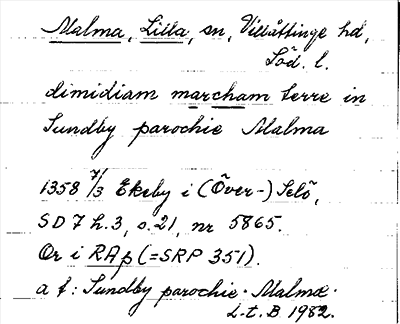 Malma, Lilla, sn, Villåttinge hd,
Söd. l.
dimidiam marcham terre in
Sundby parochie Malma
1358 7/3 Ekeby i (Över-) Selö,
SD 7 h.3, s.21, nr 5865.
Or i RAp (=SRP 351).
a f: Sundby parochie. Malmæ.
L-t. B 1982.